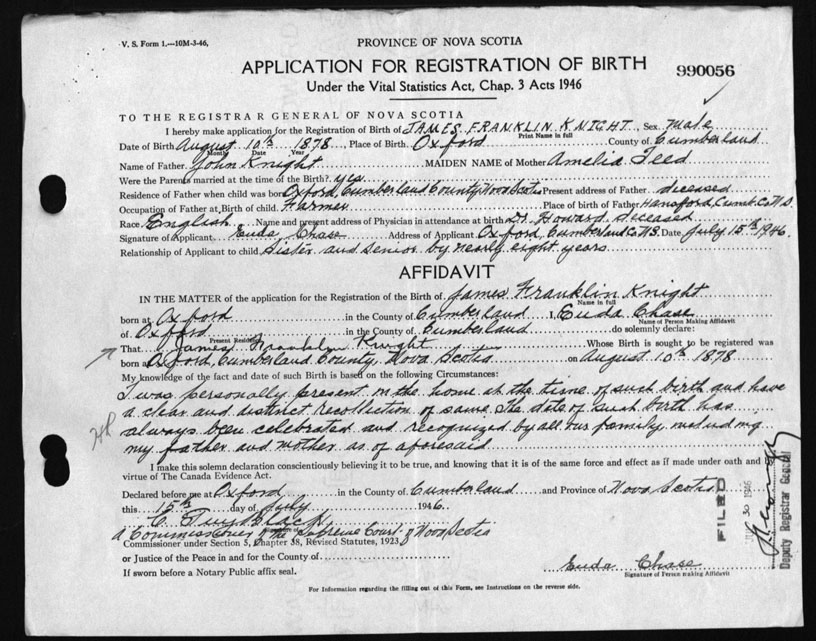 V. S. Form 1.—10M-3-46.
PROVINCE OF NOVA SCOTIA
APPLICATION FOR REGISTRATION OF BIRTH
990056
Under the Vital Statistics Act, Chap. 3 Acts 1946
TO THE REGISTRAR GENERAL OF NOVA SCOTIA
I hereby make application for the Registration of Birth of JAMES FRANKLIN KNIGHT Sex male
Print Name in full
Date of Birth August 10th 1878 Place of Birth Oxford County of Cumberland
Month Date Year
Name of Father John Knight MAIDEN NAME of Mother Amelia Teed
Were the Parents married at the time of the Birth? yes
Residence of Father when child was born Oxford, Cumberland County, Nova Scotia Present address of Father deceased
Occupation of Father at Birth of child. Farmer Place of Birth of Father Hansford, Cumb. Co. N.S.
Race English Name and present address of Physician in attendance at birth Dr. Howard deceased
Signature of Applicant Euda Chase Address of Applicant Oxford, Cumberland Co N.S. Date July 15th 1946.
Relationship of Applicant to child Sister and senior by nearly eight years
AFFIDAVIT
IN THE MATTER of the application for the Registration of the Birth of James Franklin Knight
Name in full
born at Oxford in the County of Cumberland I, Euda Chase
Name of Person Making Affidavit
of Oxford in the County of Cumberland do solemnly declare:
Present Residence
That James Franklin Knight Whose Birth is sought to be registered was
born at Oxford, Cumberland County, Nova Scotia on August 10th 1878
My knowledge of the fact and date of such Birth is based on the following Circumstances:
I was personally present in the home at the time of such birth and have
a clear and distinct recollection of same. The date of such birth has
always been celebrated and recognized by all our family including
my father and mother as of aforesaid
I make this solemn declaration conscientiously believing it to be true, and knowing that it is of the same force and effect as if made under oath and
virtue of The Canada Evidence Act.
Declared before me at Oxford in the County of Cumberland and Province of Nova Scotia
this 15th day of July 1946.
A Commissioner of the Supreme Court of Nova Scotia
Commissioner under Section 5, Chapter 38, Revised Statutes, 1923
or Justice of the Peace in and for the County of
If sworn before a Notary Public affix seal.
Euda Chase
Signature of Person Making Affidavit
For Information regarding the filling out of this Form, see Instructions on the reverse side.
FILED
30 1946
Deputy Registrar General